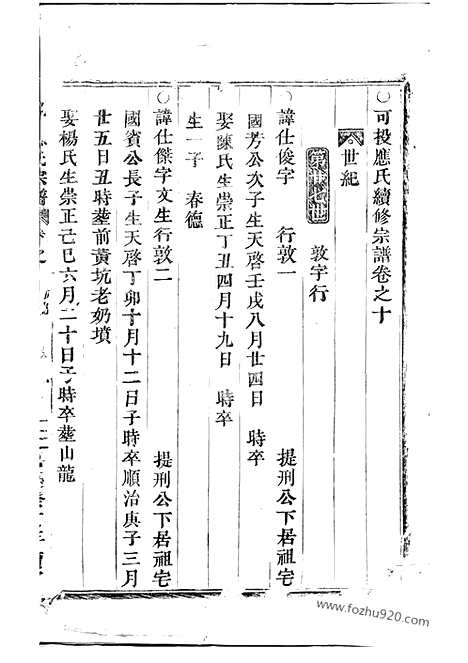 ○可投應氏續修宗譜卷之十
世紀
敦字行
○諱仕俊字 行敦一 提刑公下居祖宅
國芳公次子生天啓壬戌八月廿四日 時卒
娶陳氏生崇正丁丑四月十九日 時卒
生一子 春德
○諱仕傑字文生行敦二 提刑公下居祖宅
國賓公長子生天啓丁卯十月十二日子時卒順治庚子三月
廿五日丑時塟前黃坑老奶墳
娶楊氏生崇正己巳六月二十日子時卒塟山龍
氏宗譜
www.fozhu920.com